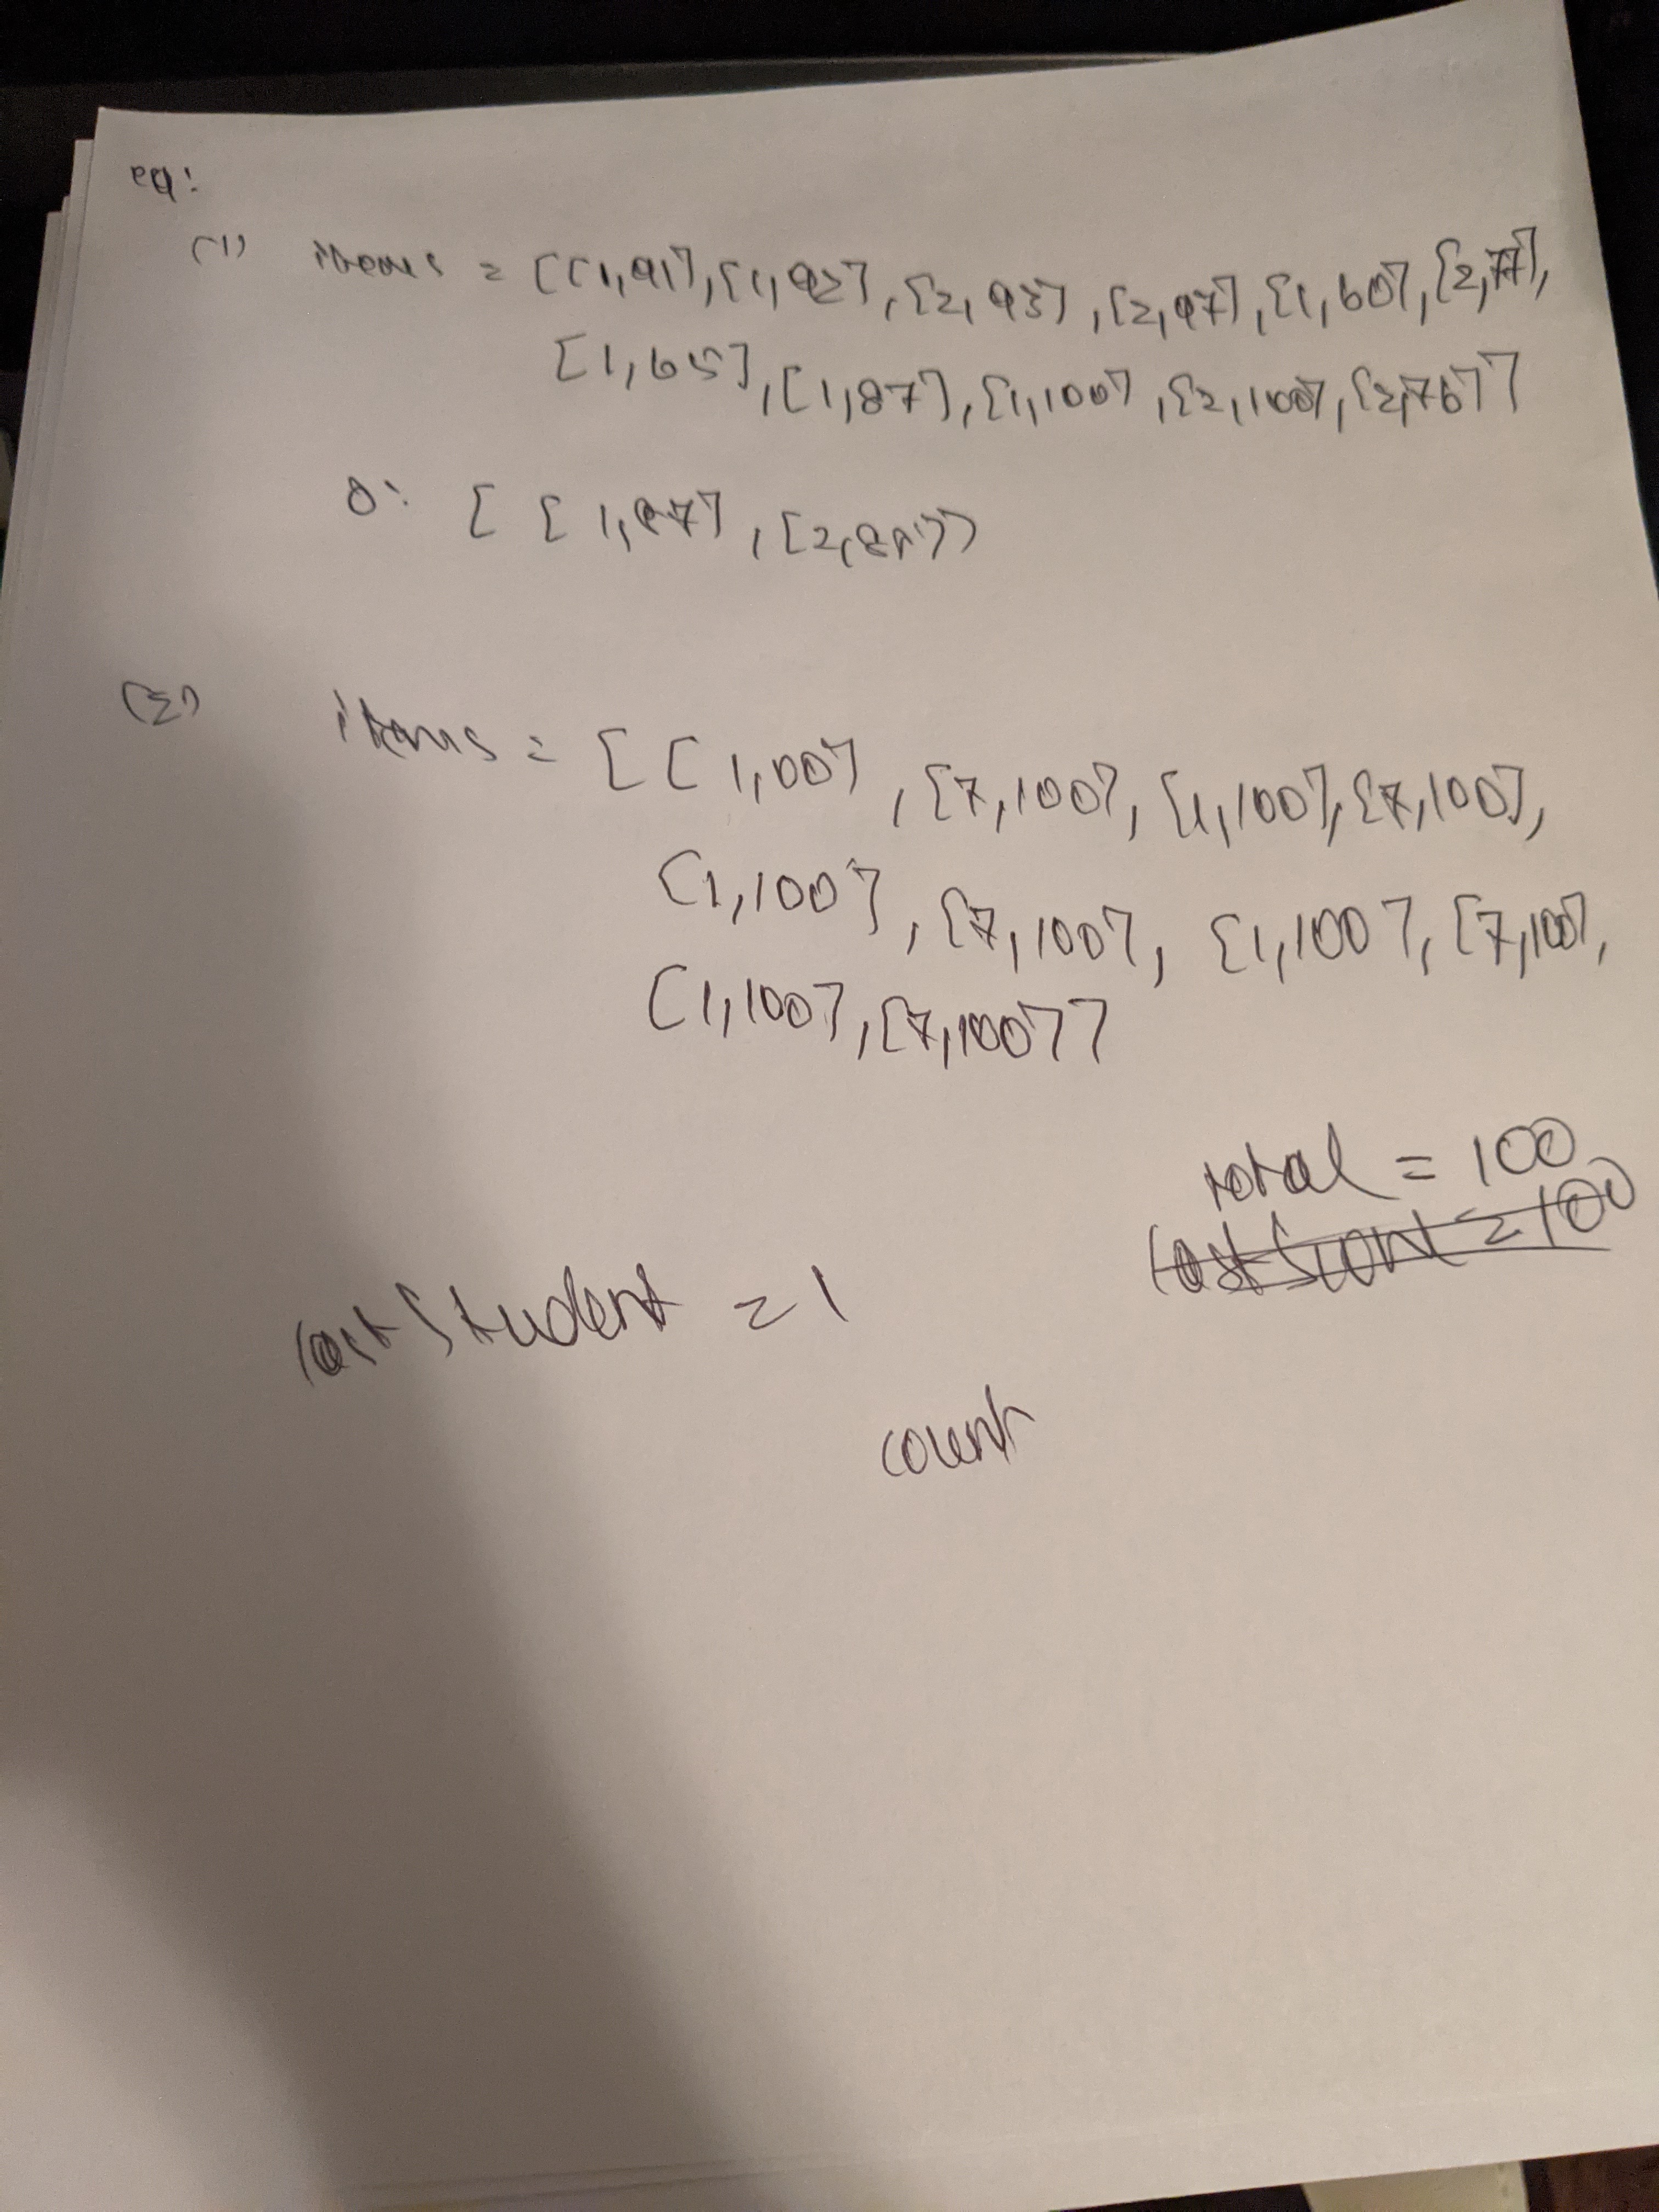 eg:
(1) items = [[1,91],[1,92],[2,93],[2,97],[1,60],[2,77],
[1,65],[1,87],[1,100],[2,100],[2,76]]
O: [[1,87],[2,88]]
(2) items = [[1,100],[7,100],[1,100],[7,100],
[1,100],[7,100],[1,100],[7,100],
[1,100],[7,100]]
total = 100
lastScore = 100
lastStudent = 1
count